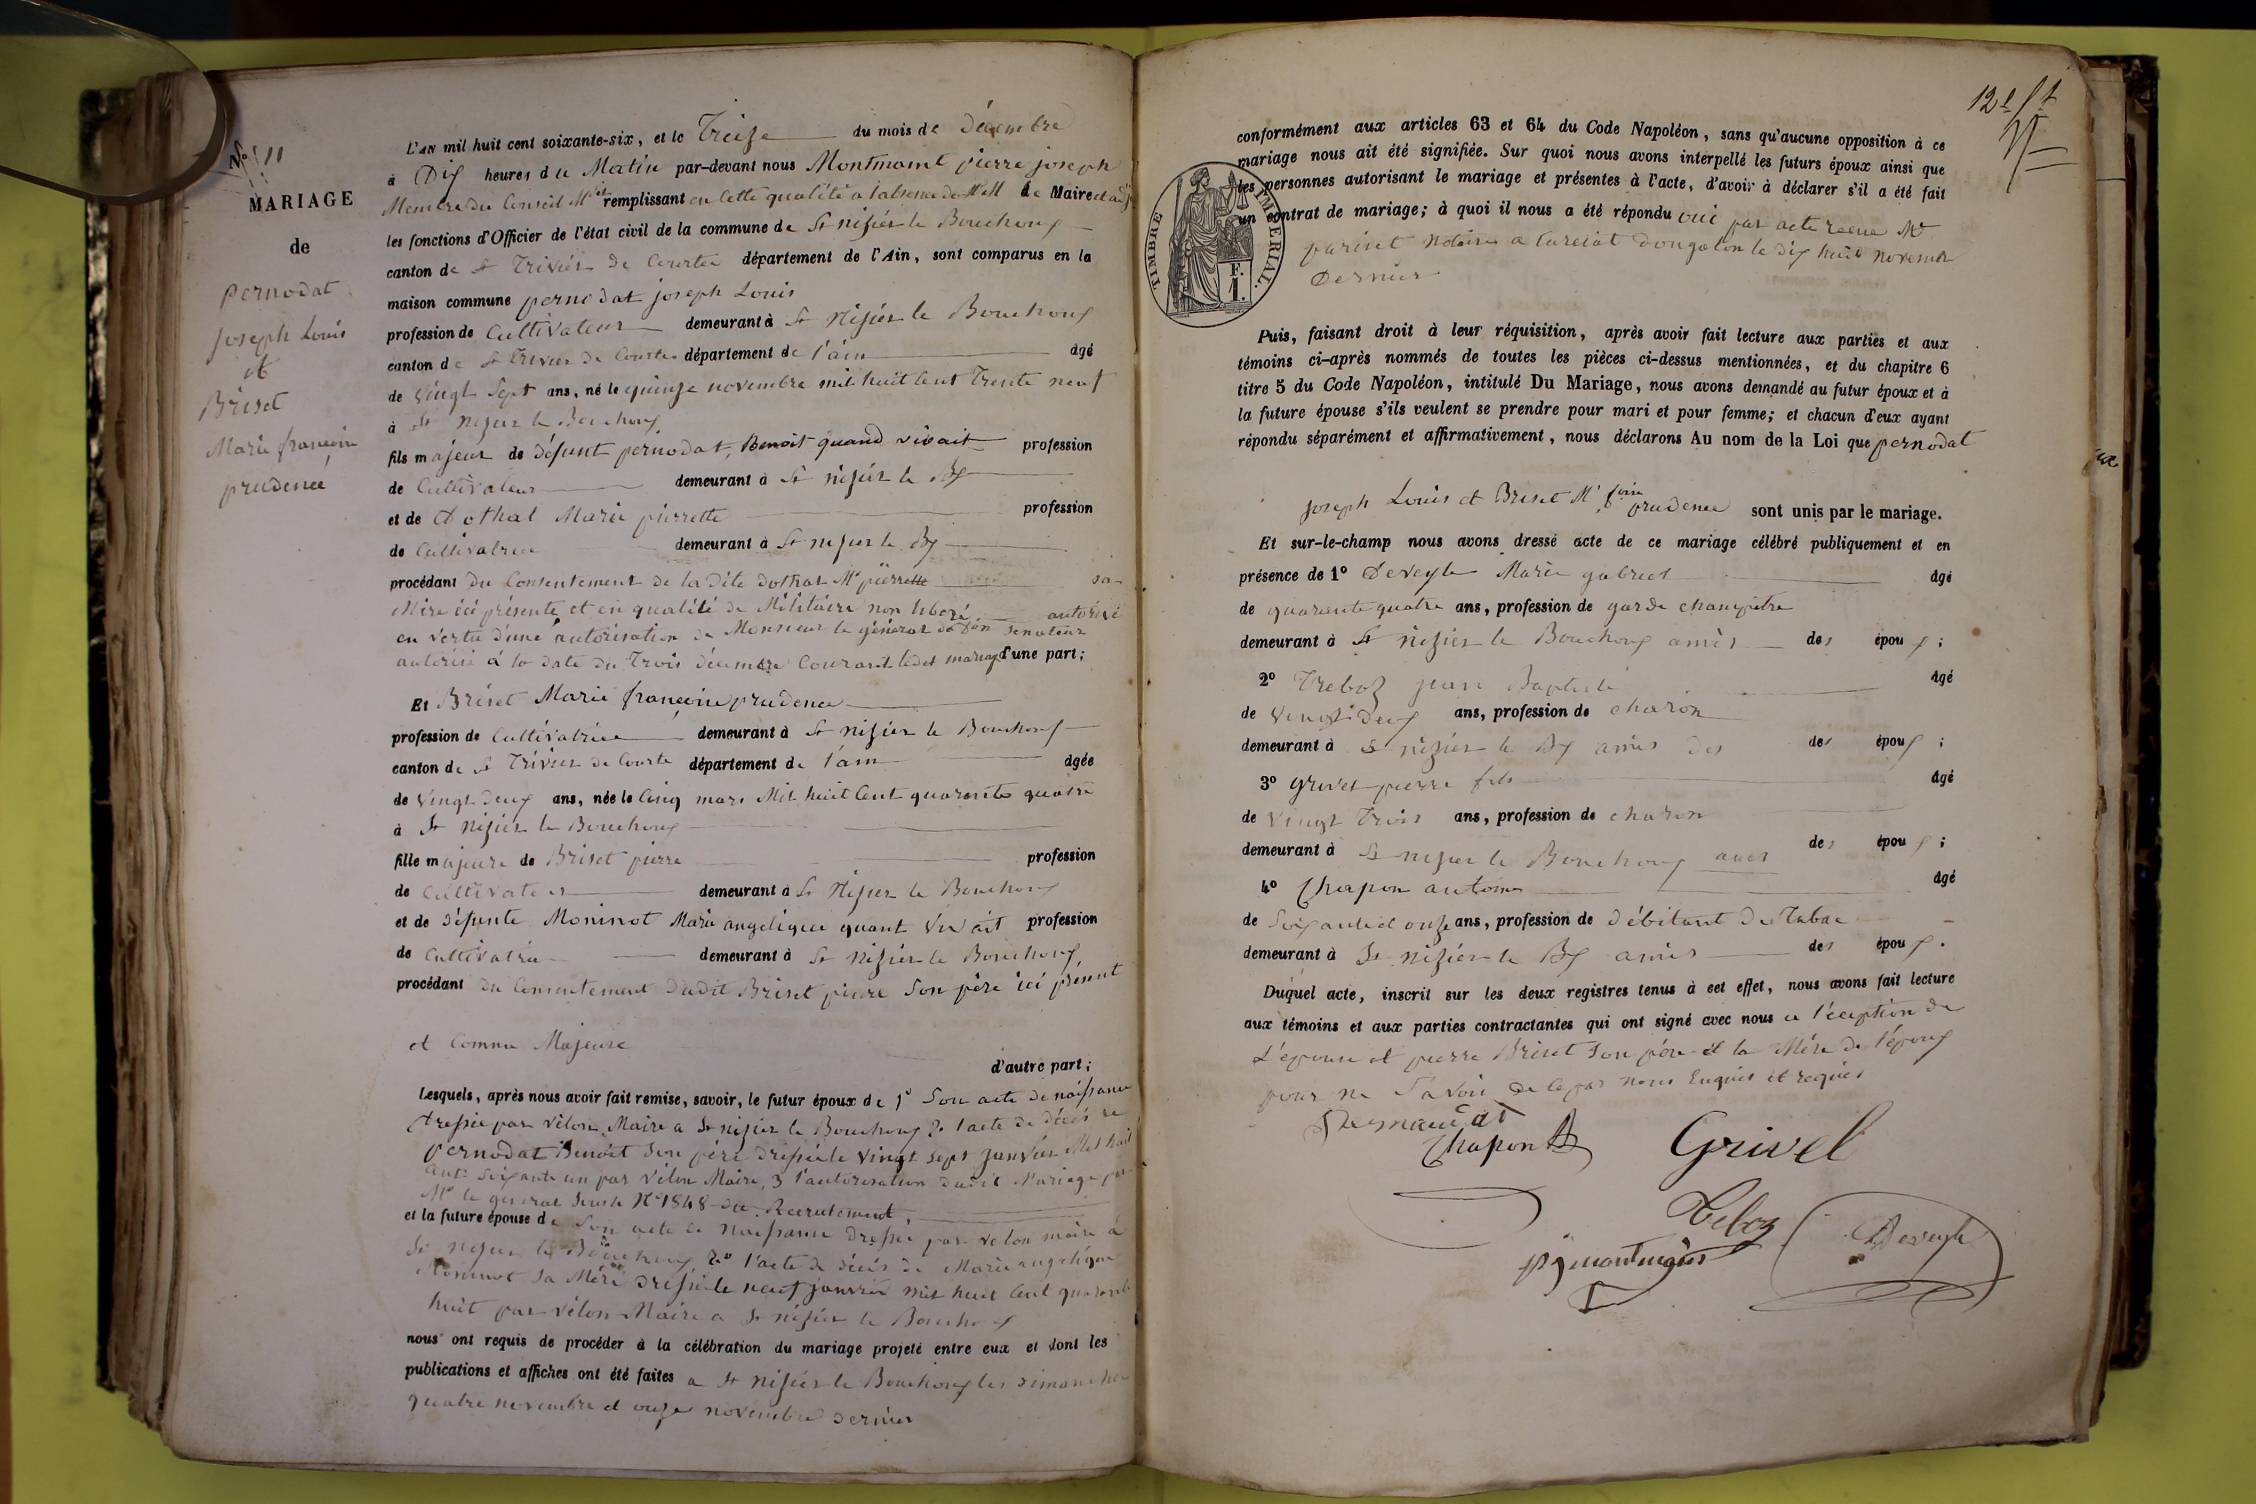 N° 11
MARIAGE
de
pernodat
joseph Louis
et
Briset
Marie françoise
prudence
L'AN mil huit cent soixante-six, et le Treize du mois de Décembre
à Dix heures du Matin par-devant nous Montmaint pierre joseph
Membre du Conseil Mal remplissant en Cette qualité a l'absence de Mr le Maire et
les fonctions d'Officier de l'état civil de la commune de St nizier le Bouchoux
canton de St Trivier de Courtes département de l'Ain, sont comparus en la
maison commune pernodat joseph Louis
profession de Cultivateur demeurant à St Nizier le Bouchoux
canton de St Trivier de Courtes département de l'ain âgé
de Vingt Sept ans, né le quinze novembre mil huit Cent Trente neuf
à St nizier le Bouchoux
fils majeur de défunt pernodat Benoit quand vivait profession
de Cultivateur demeurant à St nizier le Bx
et de Dothal Marie pierrette profession
de Cultivatrice demeurant à St nizier le Bx
procédant du Consentement de la dite Dothal Mie pierrette sa
Mère ici présente et en qualité de Militaire non liberé autorisé
en vertu d'une autorisation de Monsieur le général senateur
autorisé à la date du Trois décembre Courant ledet mariage d'une part;
Et Briset Marie françoise prudence
profession de Cultivatrice demeurant à St nizier le Bouchoux
canton de St Trivier de Courte département de l'ain âgée
de Vingt deux ans, née le Cinq mars Mil huit Cent quarante quatre
à St Nizier le Bouchoux
fille majeure de Briset pierre profession
de Cultivateur demeurant à St Nizier le Bouchoux
et de défunte Moninot Marie angelique quant Vivait profession
de Cultivatrice demeurant à St nizier le Bouchoux
procédant du Consentement dudit Briset pierre Son père ici présent
et Comme Majeure
d'autre part;
Lesquels, après nous avoir fait remise, savoir, le futur époux de 1° Son acte de naissance
dressée par Vélon Maire a St nizier le Bouchoux 2° l'acte de décès de
pernodat Benoit Son père dressé le Vingt Sept janvier Mil huit
Cent Soixante un par Vélon Maire, 3 l'autorisation dudit Mariage par
Mr le général Sous le N° 1848 Recrutement,
et la future épouse de Son acte de Naissance dressé par Velon maire à
St nizier le Bouchoux 2° l'acte de décès de Marie angélique
Moninot Sa Mère dressé le neuf janvier mil huit Cent quarante
huit par Vélon Maire a St nizier le Bouchoux
nous ont requis de procéder à la célébration du mariage projeté entre eux et dont les
publications et affiches ont été faites a St nizier le Bouchoux les dimanches
quatre novembre et onze novembre dernier
12
conformément aux articles 63 et 64 du Code Napoléon, sans qu'aucune opposition à ce
mariage nous ait été signifiée. Sur quoi nous avons interpellé les futurs époux ainsi que
les personnes autorisant le mariage et présentes à l'acte, d'avoir à déclarer s'il a été fait
un contrat de mariage; à quoi il nous a été répondu oui par acte recue Me
pariset Notaire a Curciat Dongalon le dix huit novembre
Dernier
TIMBRE IMPÉRIAL.
F.
1.
Puis, faisant droit à leur réquisition, après avoir fait lecture aux parties et aux
témoins ci-après nommés de toutes les pièces ci-dessus mentionnées, et du chapitre 6
titre 5 du Code Napoléon, intitulé Du Mariage, nous avons demandé au futur époux et à
la future épouse s'ils veulent se prendre pour mari et pour femme; et chacun d'eux ayant
répondu séparément et affirmativement, nous déclarons Au nom de la Loi que pernodat
joseph Louis et Briset Mie foise prudence sont unis par le mariage.
Et sur-le-champ nous avons dressé acte de ce mariage célébré publiquement et en
présence de 1° Deveyle Marie gabriel âgé
de quarante quatre ans, profession de garde champêtre
demeurant à St nizier le Bouchoux amis des époux;
2° Treboz jean Baptiste âgé
de Vingt deux ans, profession de charon
demeurant à St nizier le Bx amis des des époux;
3° grivel pierre fils âgé
de Vingt Trois ans, profession de charon
demeurant à St nizier le Bouchoux amis des époux;
4° Chapon antoine âgé
de Soixante et onze ans, profession de débitant de Tabac
demeurant à St nizier le Bx amis des époux.
Duquel acte, inscrit sur les deux registres tenus à cet effet, nous avons fait lecture
aux témoins et aux parties contractantes qui ont signé avec nous a l'éception de
L'épouse et pierre Briset Son père et la Mère de l'époux
pour ne Savoir de ce par nous Enquis et requis
Chapon
Grivel
Treboz
Deveyle